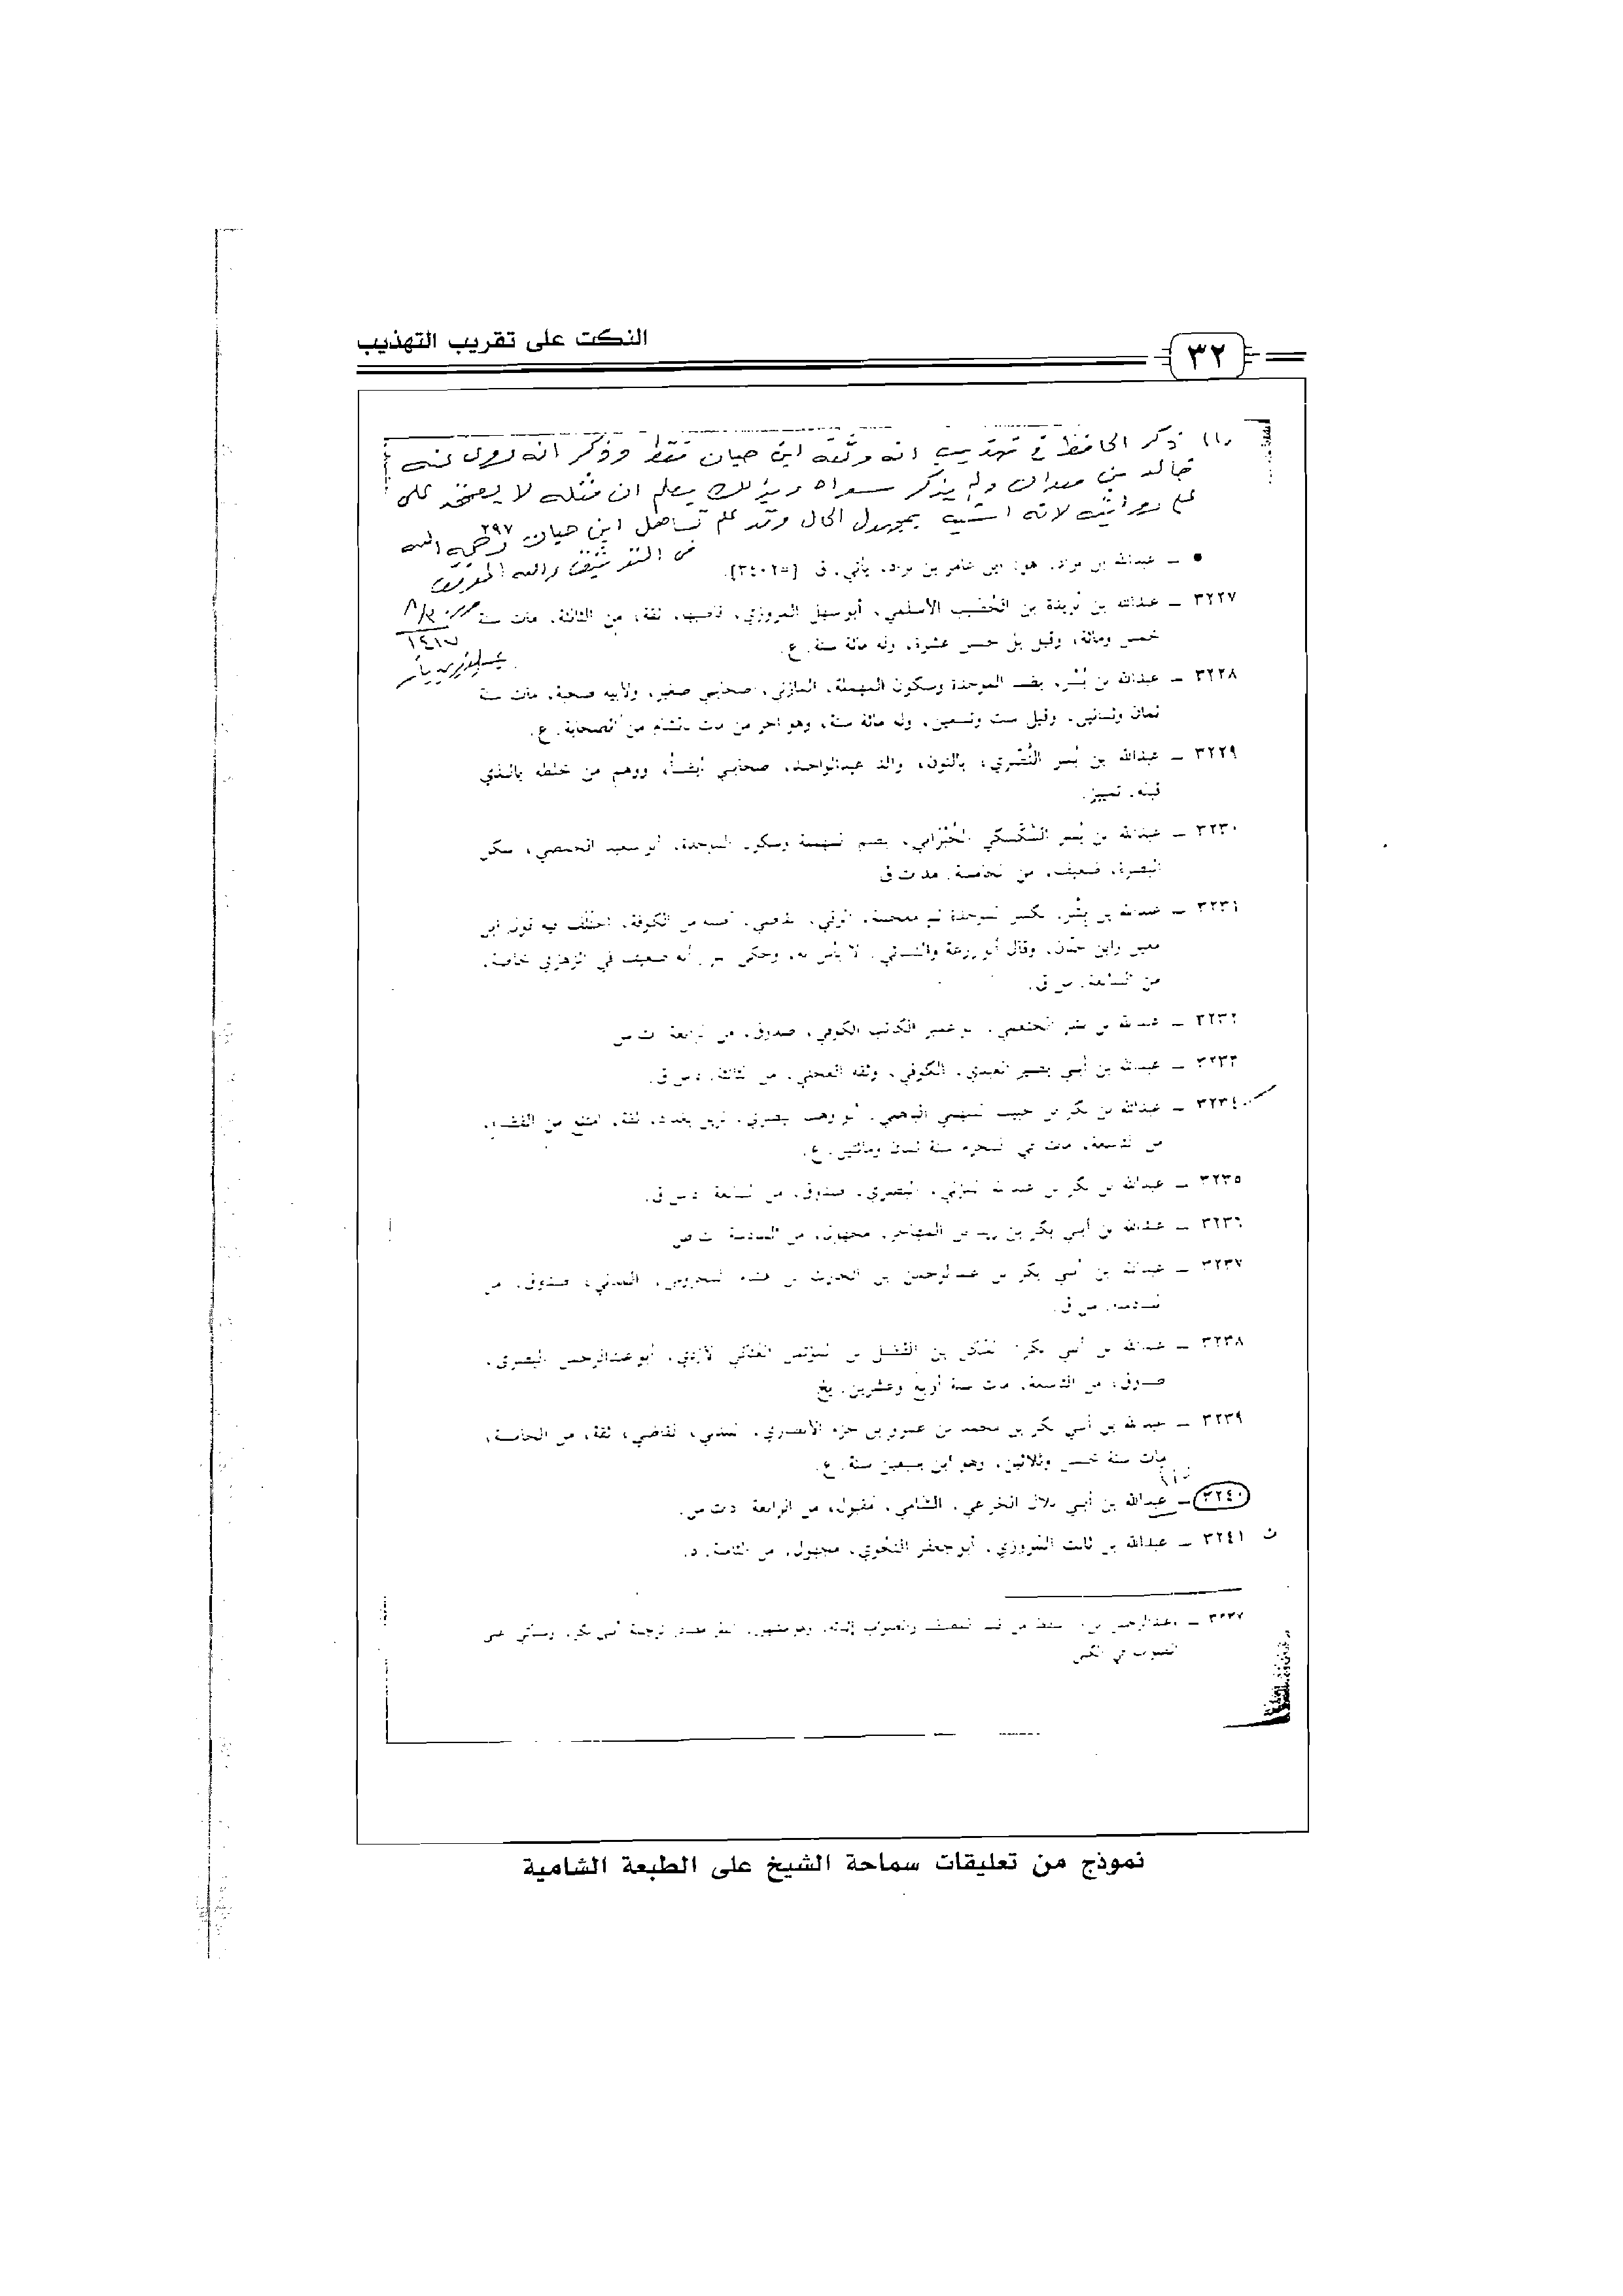 النكت على تقريب التهذيب
٣٢
(١) ذكر الحافظ في تهذيبه انه وثقه ابن حبان فقط وذكر انه روى عنه
خالد بن معدان ولم يذكر سواه وبذلك يعلم ان مثله لا يعتمد على
روايته لانه اشبه بمجهول الحال وقد علم تساهل ابن حبان رحمه الله
٢٩٧
في التوثيق والله الموفق
● ـ عبدالله بن براد، هو: ابن عامر بن براد، يأتي. ق [=٣٤٠٢].
٣٢٢٧ ـ عبدالله بن بُريدة بن الحُصَيب الأسلمي، أبو سهل المروزي، قاضيها، ثقة، من الثالثة، مات سنة
خمس ومائة، وقيل بل خمس عشرة، وله مائة سنة. ع.
١٤١٧
٣٢٢٨ ـ عبدالله بن بُسْر، بضم الموحدة وسكون المهملة، المازني، صحابي صغير، ولأبيه صحبة، مات سنة
ثمان وثمانين، وقيل ست وتسعين، وله مائة سنة، وهو آخر من مات بالشام من الصحابة. ع.
٣٢٢٩ ـ عبدالله بن بُسر النَّصْري، بالنون، والد عبدالواحد، صحابي أيضاً، ووهم من خلطه بالذي
قبله. تمييز.
٣٢٣٠ ـ عبدالله بن بُسر السَّكْسكي الحُبْراني، بضم المهملة وسكون الموحدة، أبو سعيد الحمصي، سكن
البصرة، ضعيف، من الخامسة. مد ت ق
٣٢٣١ ـ عبدالله بن بِشْر، بكسر الموحدة ثم معجمة، الرقي، القاضي، أصله من الكوفة، اختلف فيه قول ابن
معين وابن حبان، وقال أبو زرعة والنسائي: لا بأس به، وحكى أنه ضعيف في الزهري خاصة،
من السابعة. س ق.
٣٢٣٢ ـ عبدالله بن بشر الخثعمي، أبو عمير الكاتب الكوفي، صدوق، من الرابعة. ت س
٣٢٣٣ ـ عبدالله بن أبي بصير العبدي، الكوفي، وثقه العجلي، من الثالثة. د س ق.
٣٢٣٤ ـ عبدالله بن بكر بن حبيب السهمي الباهلي، أبو وهب البصري، نزيل بغداد، ثقة، امتنع من القضاء،
من التاسعة، مات في المحرم سنة ثمان ومائتين. ع.
٣٢٣٥ ـ عبدالله بن بكر بن عبدالله المزني، البصري، صدوق، من السابعة. د س ق.
٣٢٣٦ ـ عبدالله بن أبي بكر بن زيد بن المهاجر، مجهول، من السادسة.
٣٢٣٧ ـ عبدالله بن أبي بكر بن عبدالرحمن بن الحارث بن هشام المخزومي، المدني، صدوق، من
السادسة. س ق.
٣٢٣٨ ـ عبدالله بن أبي بكر: السَّكَن بن الفضل بن المؤتمن العَتَكي الأزدي، أبو عبدالرحمن البصري،
صدوق، من التاسعة، مات سنة أربع وعشرين. بخ
٣٢٣٩ ـ عبدالله بن أبي بكر بن محمد بن عمرو بن حزم الأنصاري، المدني، القاضي، ثقة، من الخامسة،
مات سنة خمس وثلاثين، وهو ابن سبعين سنة. ع.
(١)
٣٢٤٠ ـ عبدالله بن أبي بلال الخزاعي، الشامي، مقبول، من الرابعة. د ت س.
ث ٣٢٤١ ـ عبدالله بن ثابت المروزي، أبو جعفر النحوي، مجهول، من الثامنة. د.
٣٢٣٧ ـ
نموذج من تعليقات سماحة الشيخ على الطبعة الشامية